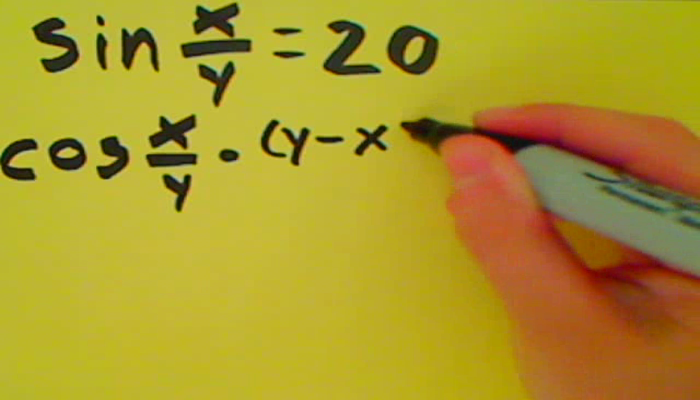 sin x/y = 20
cos x/y · (y - x